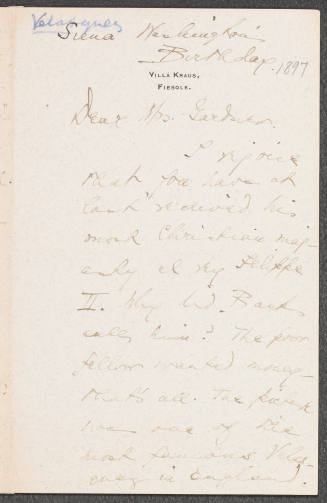 Velasquez
Siena Washington's
Birthday. 1897
VILLA KRAUS,
FIESOLE.
Dear Mrs. Gardner.
I rejoice
that you have at
last received his
most Christian maj-
esty el rey Felippe
II. Why did
him? The poor
fellow wanted money –
that's all. The picture
was one of the
most famous Velas-
quez in England.